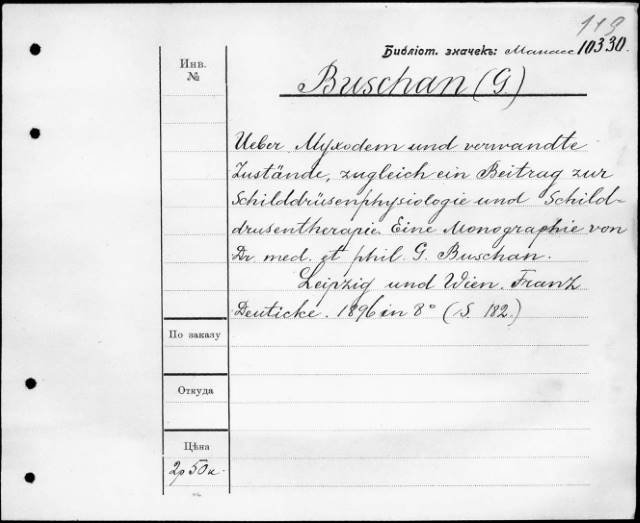 119
Библіот. значекъ: Манасс 10330.
Инв.
№
Buschan (G.)
Ueber Myxodem und verwandte
Zustände, zugleich ein Beitrag zur
Schilddrüsenphysiologie und Schild-
drusentherapie. Eine Monographie von
Dr. med. et phil. G. Buschan.
Leipzig und Wien. Franz
Deuticke. 1896 in 8° (S. 182.)
По заказу
Откуда
Цѣна
2р 50к.